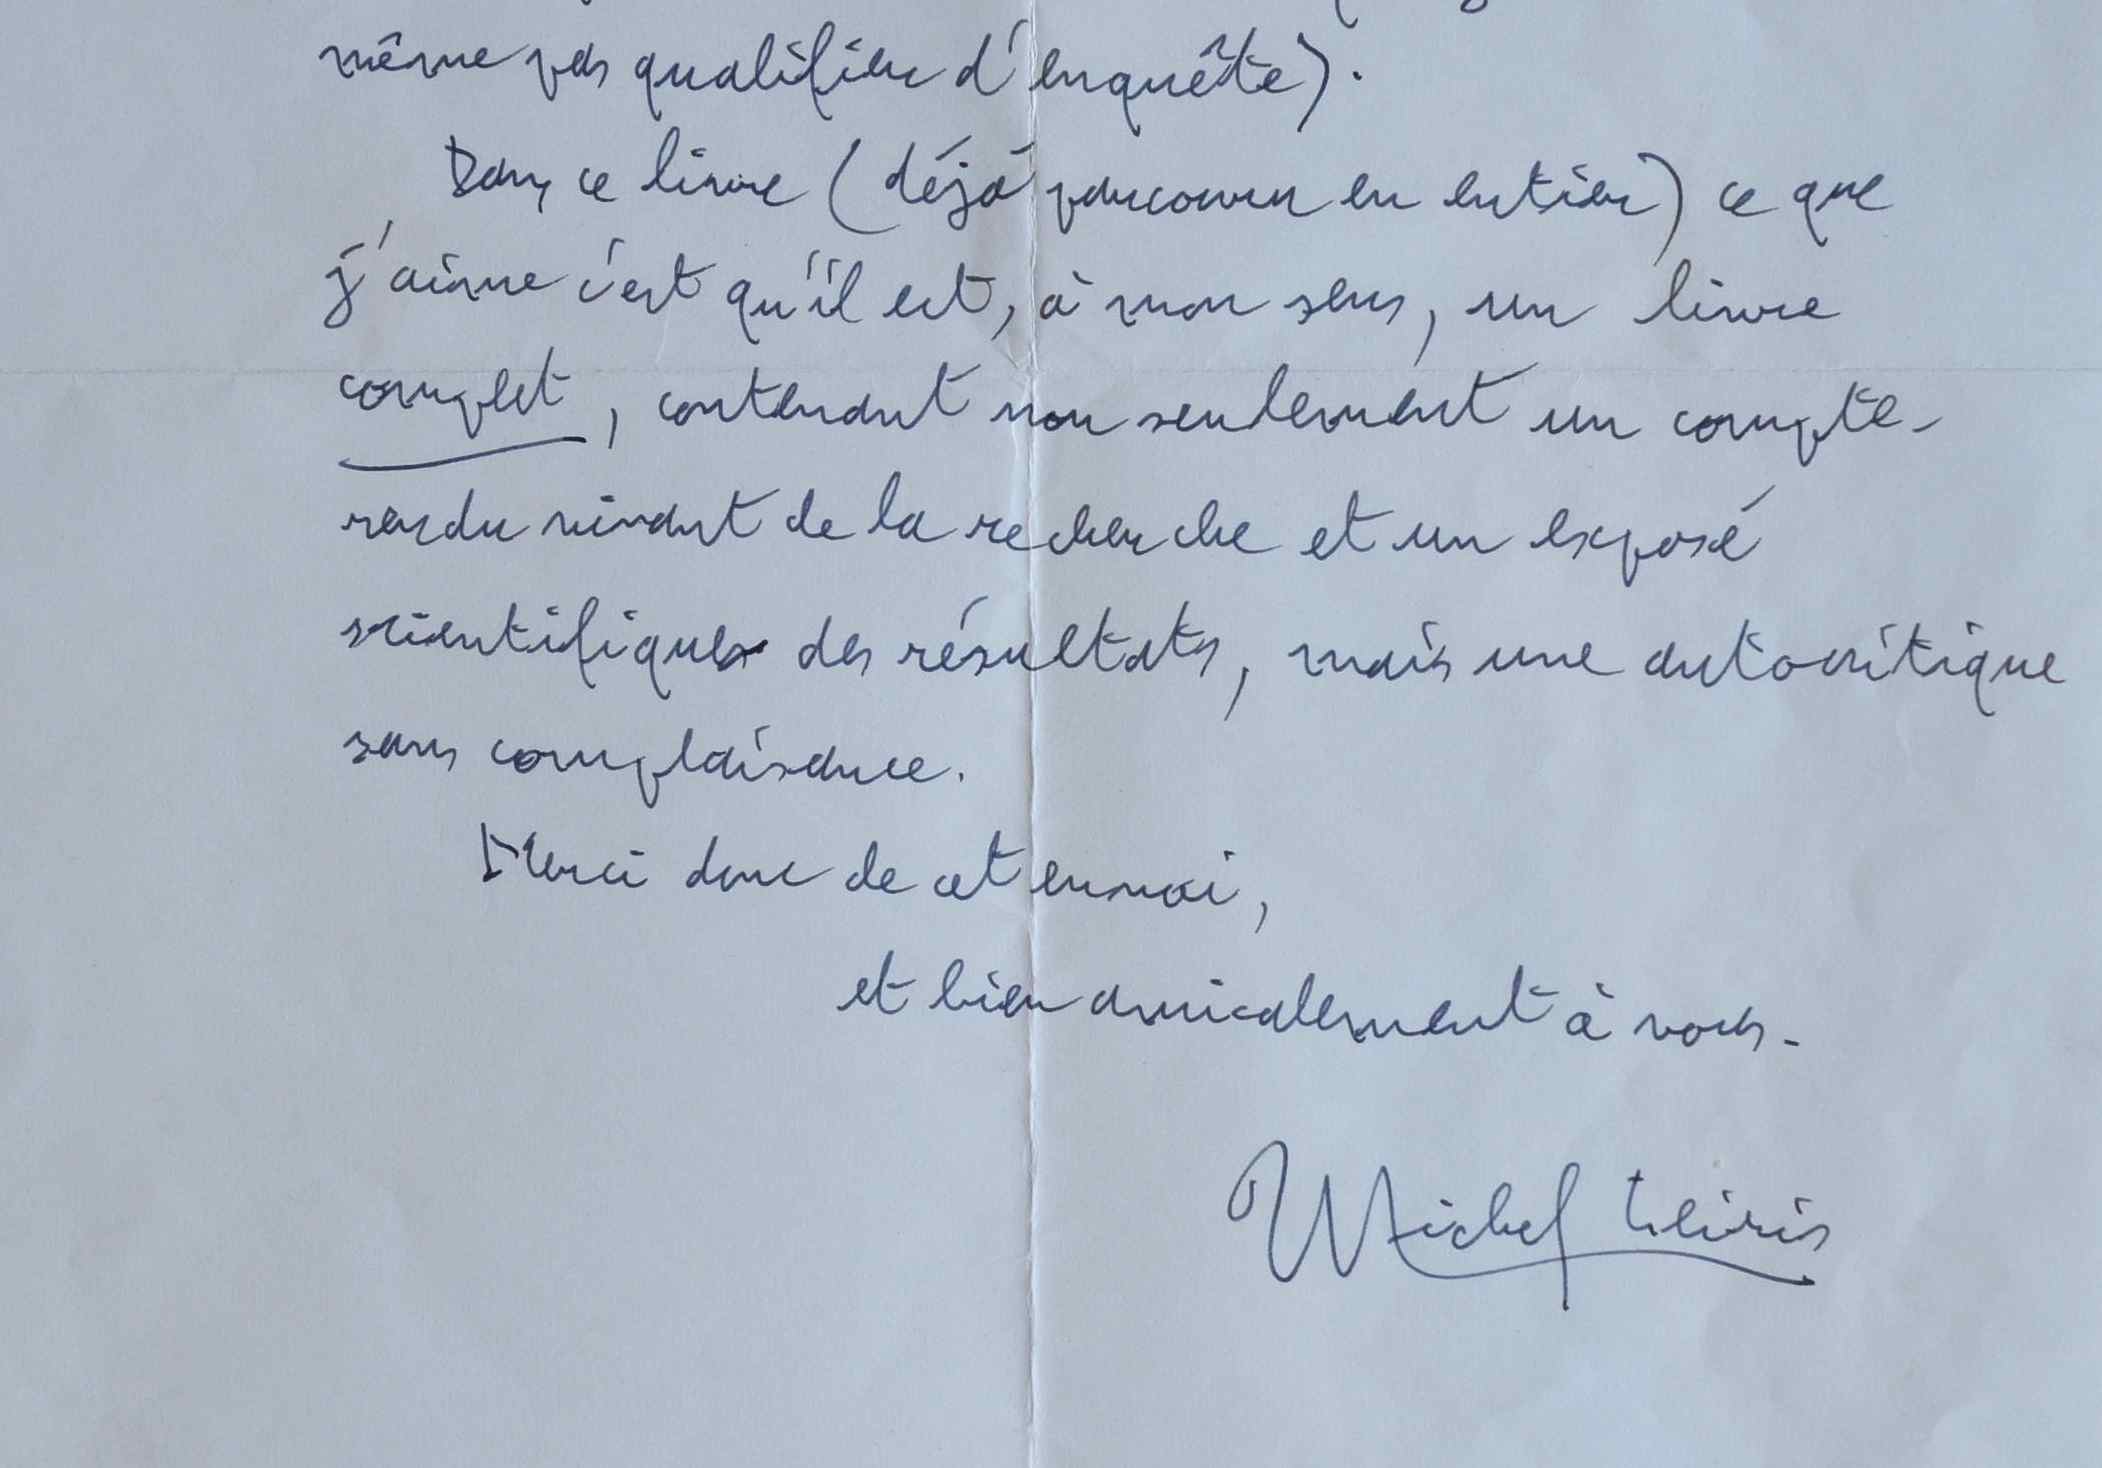 même pas qualifier d'enquête).
Dans ce livre (déjà parcouru en entier) ce que
j'aime c'est qu'il est, à mon sens, un livre
complet, contenant non seulement un compte-
rendu vivant de la recherche et un exposé
scientifique des résultats, mais une autocritique
sans complaisance.
Merci donc de cet envoi,
et bien amicalement à vous.
Michel Leiris